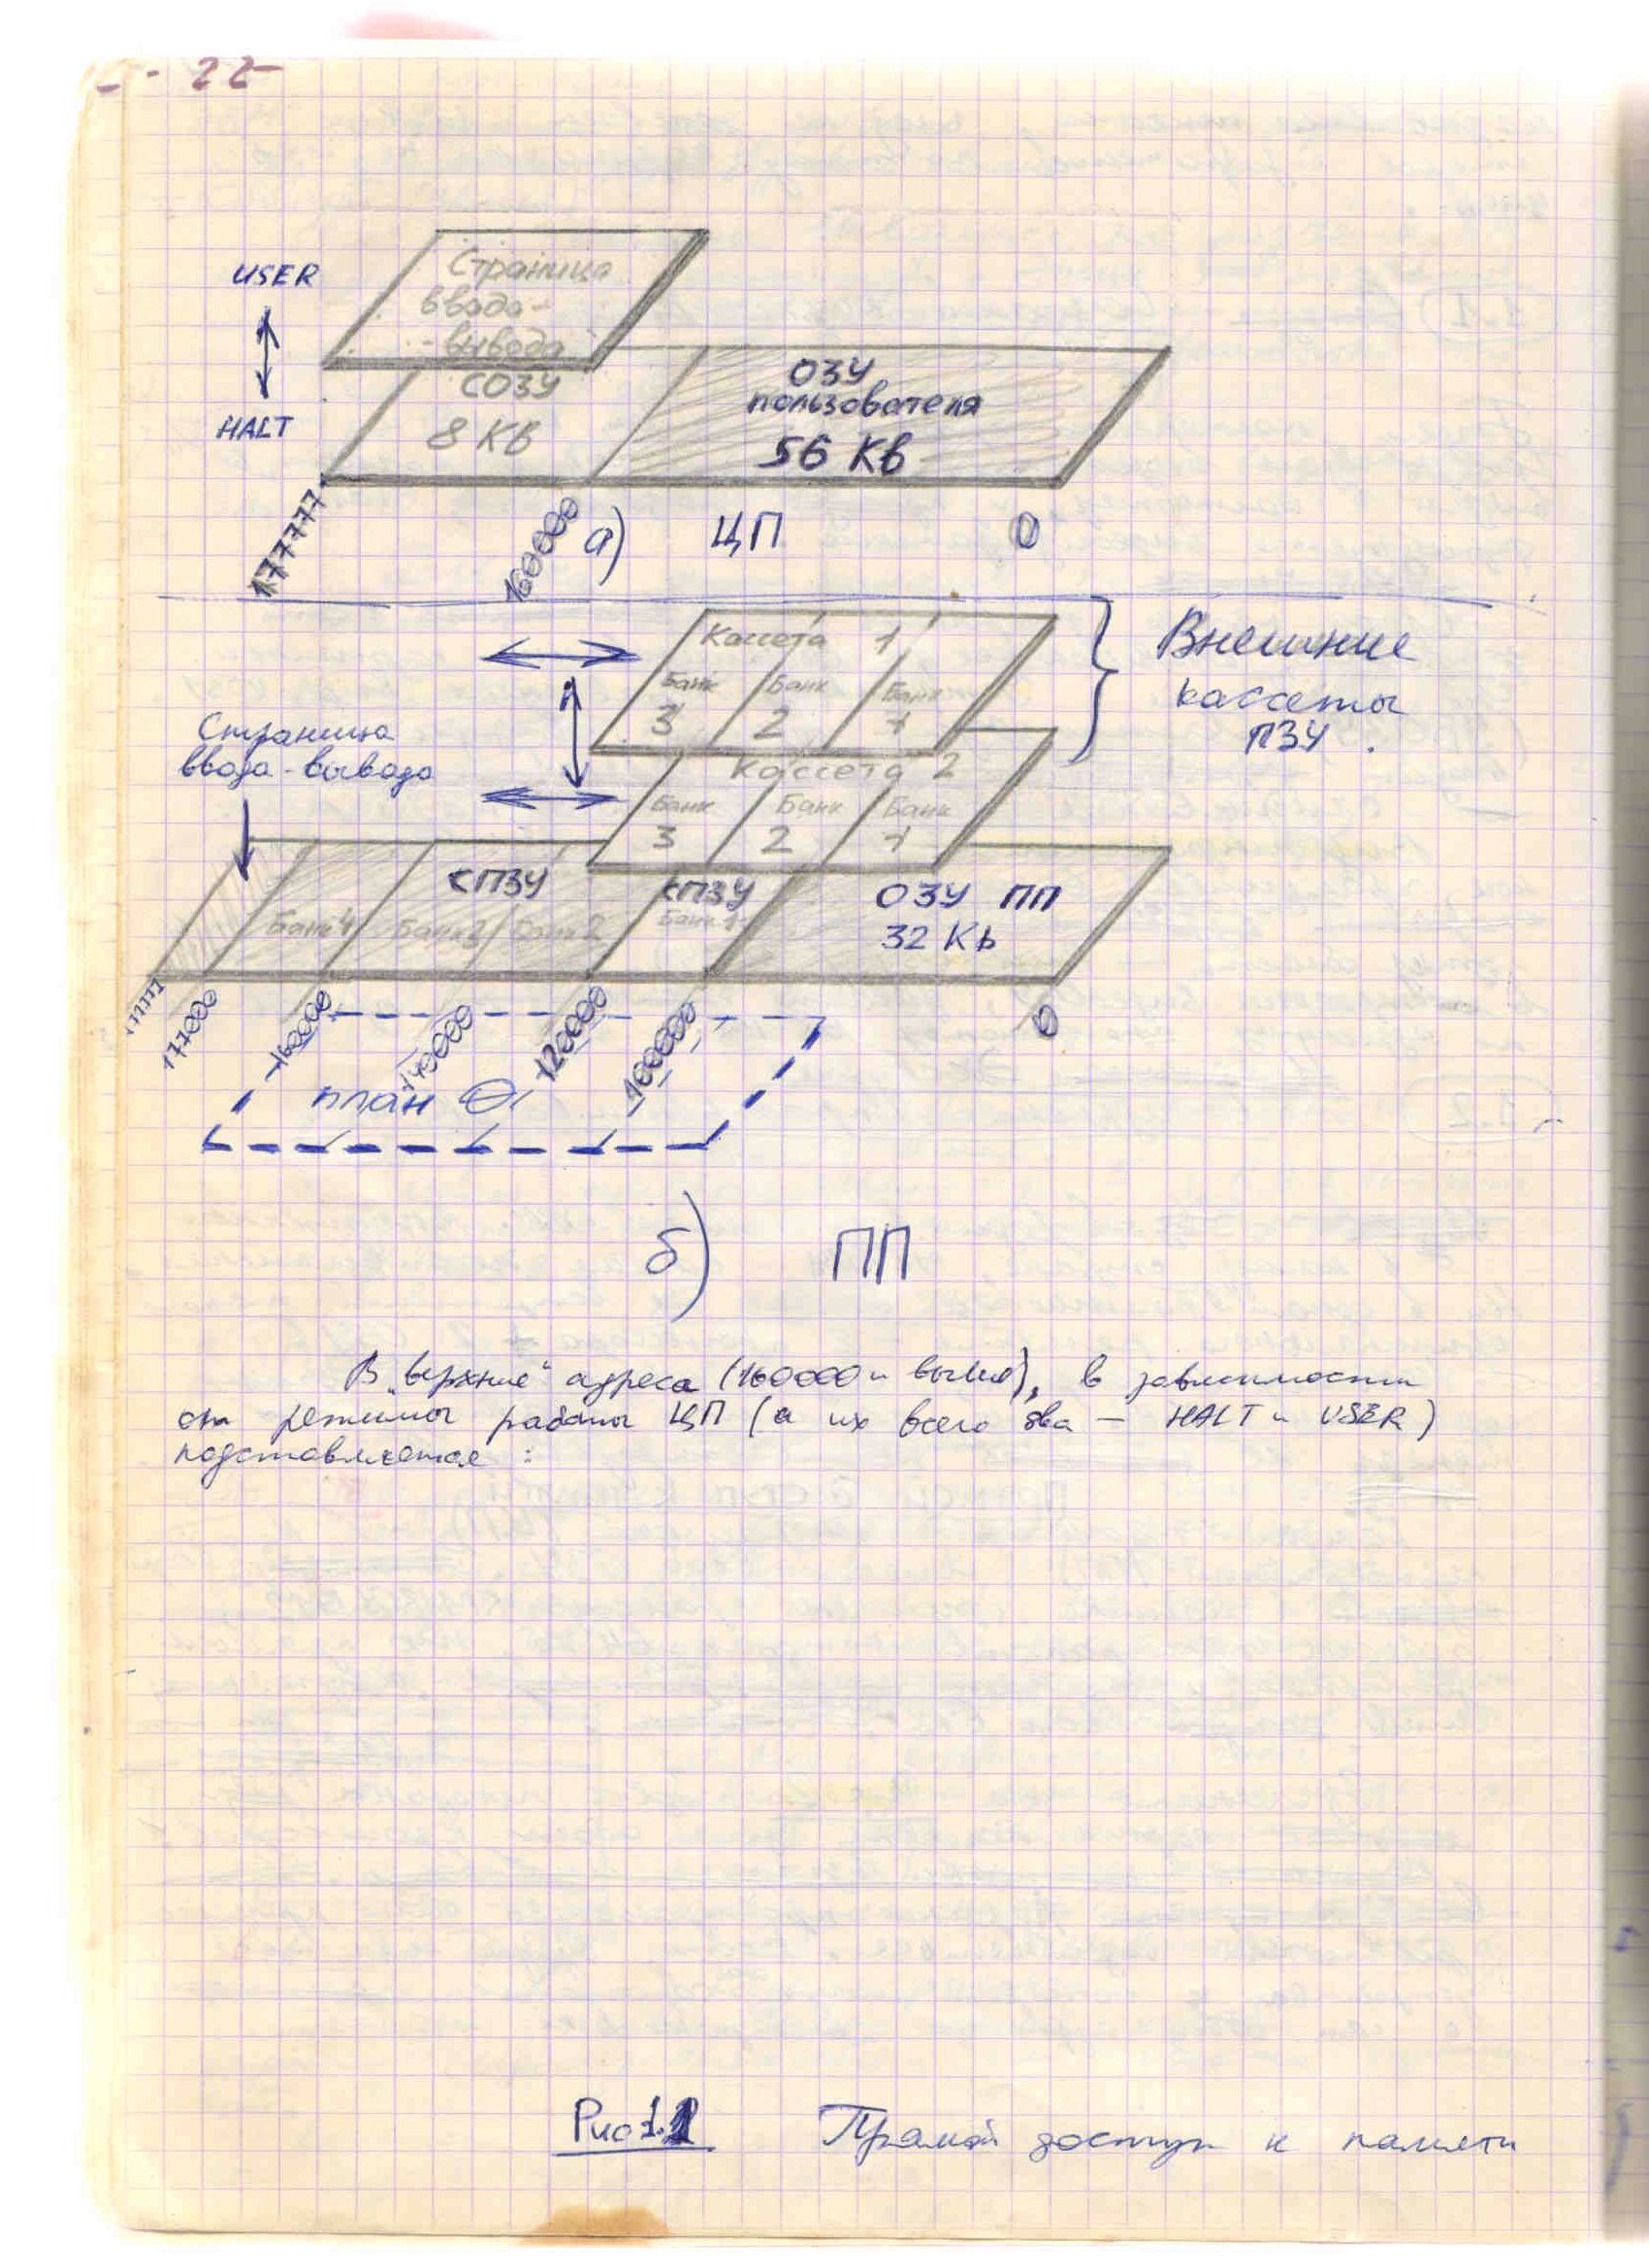 - 22 -
USER
HALT
Страница
ввода-
-вывода
СОЗУ
8 Кв
ОЗУ
пользователя
56 Кв
177777
160000
а) ЦП
0
Кассета 1
Банк 3
Банк 2
Банк 1
Внешние
кассеты
ПЗУ.
Страница
ввода-вывода
Кассета 2
Банк 3
Банк 2
Банк 1
СПЗУ
Банк 4
Банк 3
Банк 2
СПЗУ
Банк 1
ОЗУ ПП
32 Кb
177777
177000
160000
140000
120000
100000
0
план 0
б) ПП
В „верхние“ адреса (160000 и выше), в зависимости
от режима работы ЦП (а их всего два — HALT и USER)
подставляется :
Рис 1.1 Прямой доступ к памяти